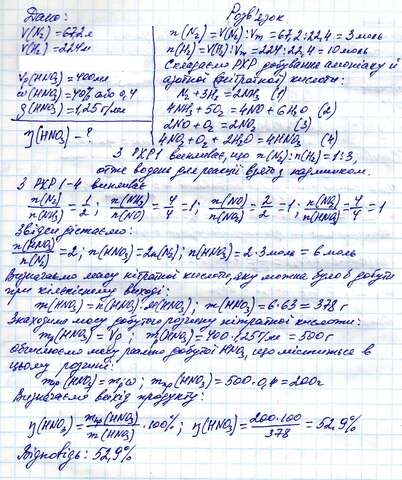 Дано:
Розв'язок
V(N₂)=67,2л
V(H₂)=224л
Vр(HNO₃)=400мл
ω(HNO₃)=40% або 0,4
ρ(HNO₃)=1,25г/мл
η(HNO₃)-?
n(N₂)=V(N₂):Vm=67,2:22,4=3моль
n(H₂)=V(H₂):Vm=224:22,4=10моль
Складаємо РХР добування амоніаку й
азотної (нітратної) кислоти:
N₂+3H₂=2NH₃ (1)
4NH₃+5O₂=4NO+6H₂O (2)
2NO+O₂=2NO₂ (3)
4NO₂+O₂+2H₂O=4HNO₃ (4)
З РХР1 випливає, що n(N₂):n(H₂)=1:3,
отже водень для реакції взято з надлишком.
З РХР 1-4 випливає
n(N₂)/n(NH₃)=1/2; n(NH₃)/n(NO)=4/4=1; n(NO)/n(NO₂)=2/2=1; n(NO₂)/n(HNO₃)=4/4=1
Звідси дістаємо:
n(HNO₃)/n(N₂)=2; n(HNO₃)=2n(N₂); n(HNO₃)=2·3моль=6моль
Визначаємо масу нітратної кислоти, яку можна було б добути
при кількісному виході:
m(HNO₃)=n(HNO₃)·M(HNO₃); m(HNO₃)=6·63=378г
Знаходимо масу добутого розчину нітратної кислоти:
mр(HNO₃)=Vρ; m(HNO₃)=400·1,25г/мл=500г
Обчислюємо масу реально добутої HNO₃, що міститься в
цьому розчині:
mпр(HNO₃)=mрω; mпр(HNO₃)=500·0,4=200г
Визначаємо вихід продукту:
η(HNO₃)=mпр(HNO₃)/m(HNO₃)·100%; η(HNO₃)=200·100/378=52,9%
Відповідь: 52,9%